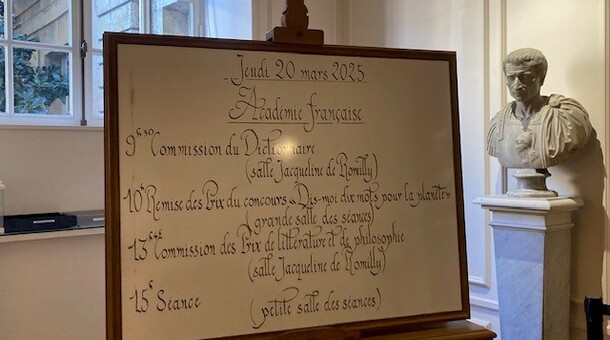 Jeudi 20 mars 2025
Académie française
9h30 Commission du Dictionnaire
(salle Jacqueline de Romilly)
10h Remise des Prix du concours « Dis-moi dix mots pour la planète »
(grande salle des séances)
13h45 Commission des Prix de littérature et de philosophie
(salle Jacqueline de Romilly)
15h Séance (petite salle des séances)